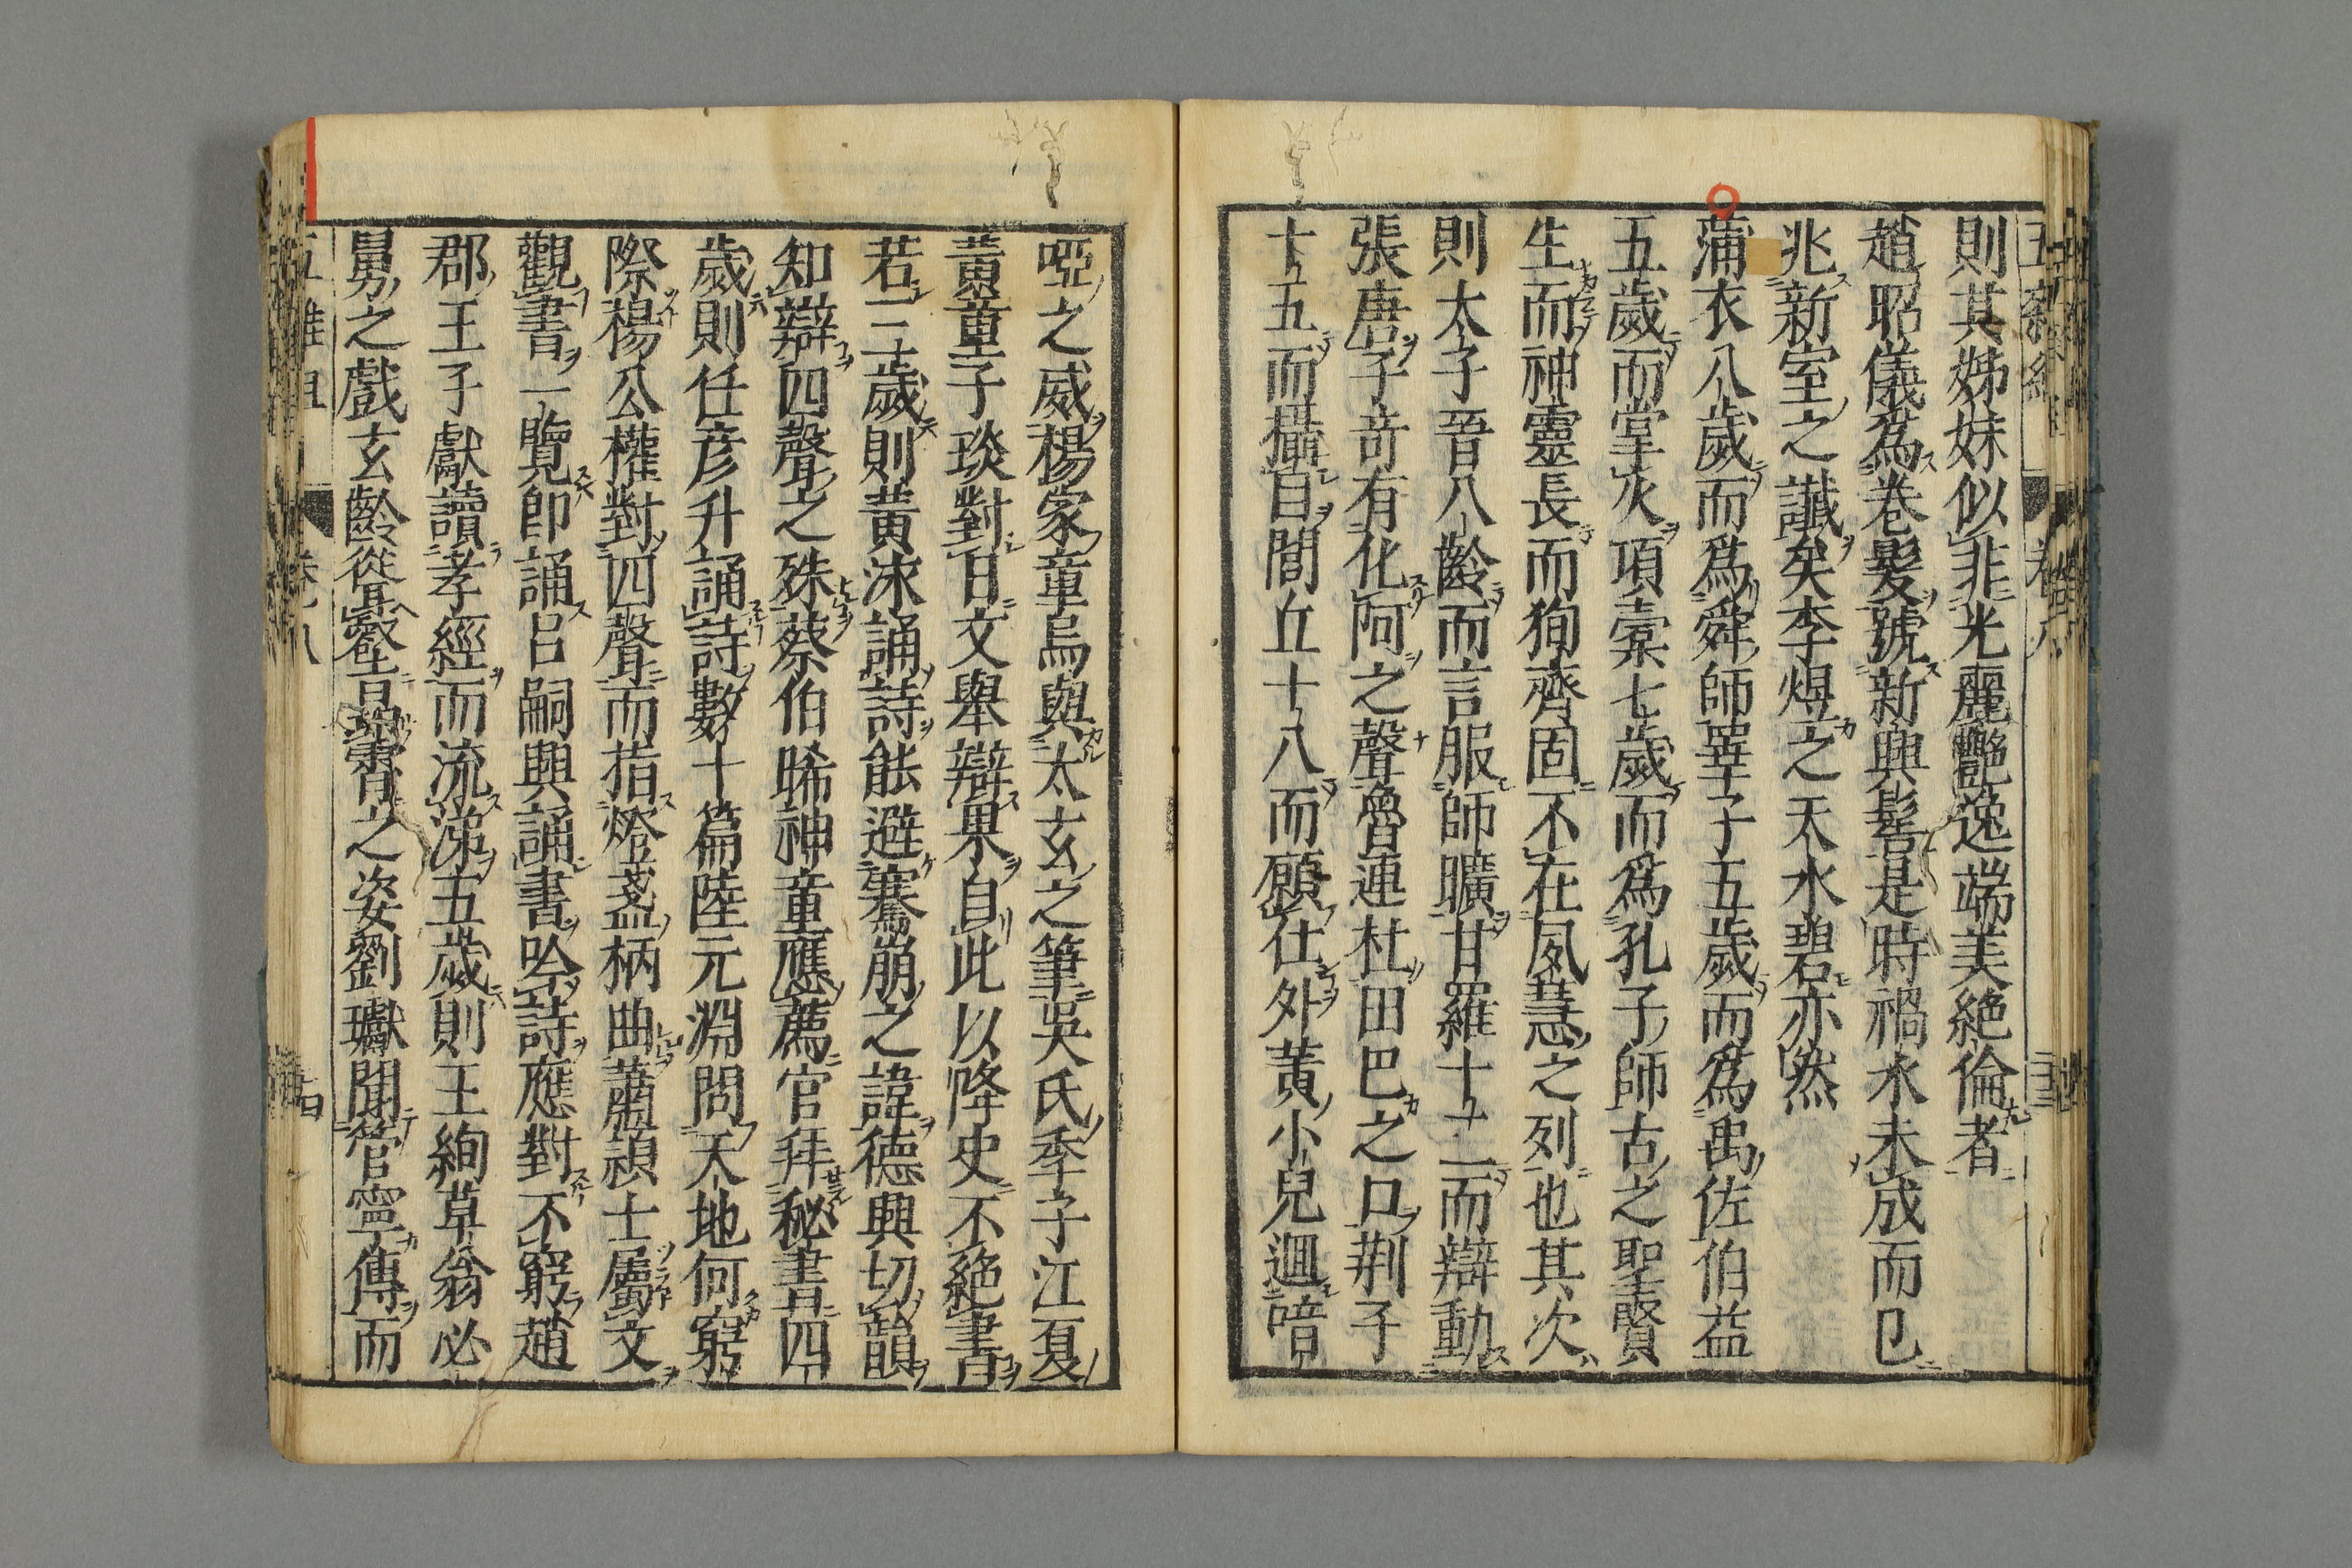 則其姊妹似非光麗艷逸端美絕倫者
趙昭儀爲卷髮號新興髻是時禍水未成而已
兆新室之讖矣李煜之天水碧亦然
蒲衣八歲而爲舜師睪子五歲而爲禹佐伯益
五歲而掌火項橐七歲而爲孔子師古之聖賢
生而神靈長而狥齊固不在夙慧之列也其次
則太子晉八齡而言服師曠甘羅十二而辯動
張唐子奇有化阿之聲魯連杜田巴之口荆子
十五而攝自閭丘十八而願仕外黃小兒迴喑
啞之威楊家童烏與太玄之筆吳氏季子江夏
黃童子琰對日文舉辯果自此以降史不絕書
若二歲則黃洡誦詩能避騫崩之諱德興切韻
知辯四聲之殊蔡伯晞神童應薦官拜秘書四
歲則任彥升誦詩數十篇陸元淵問天地何窮
際楊公權對四聲而指燈盞柄曲蕭頴士屬文
觀書一覽卽誦吕嗣興誦書吟詩應對不窮趙
郡王子獻讀孝經而流涕五歲則王絢草翁必
舅之戲玄齡從
之姿劉瓛聞管寧傳而
卷八